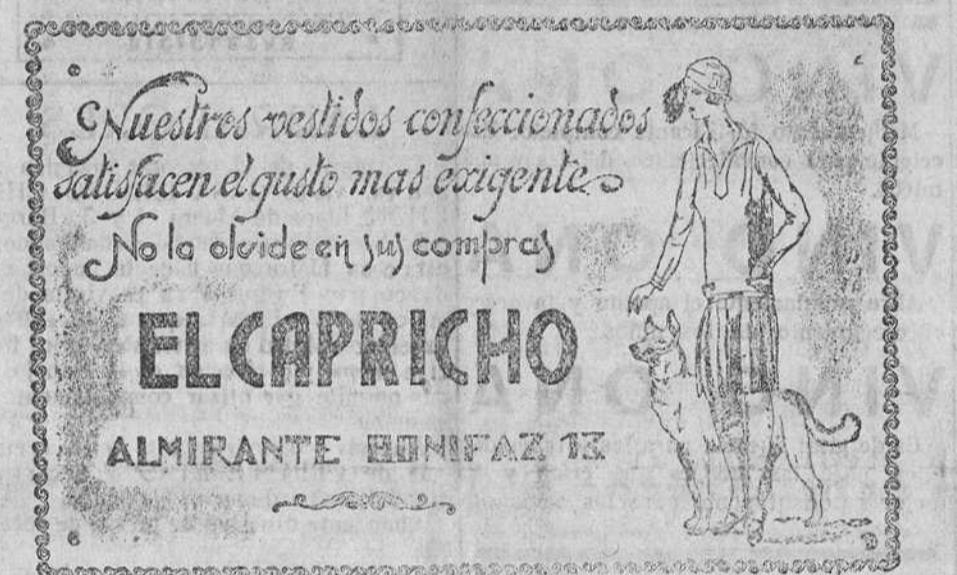 Nuestros vestidos confeccionados
satisfacen el gusto mas exigente.
No la olvide en sus compras
EL CAPRICHO
ALMIRANTE BONIFAZ 13